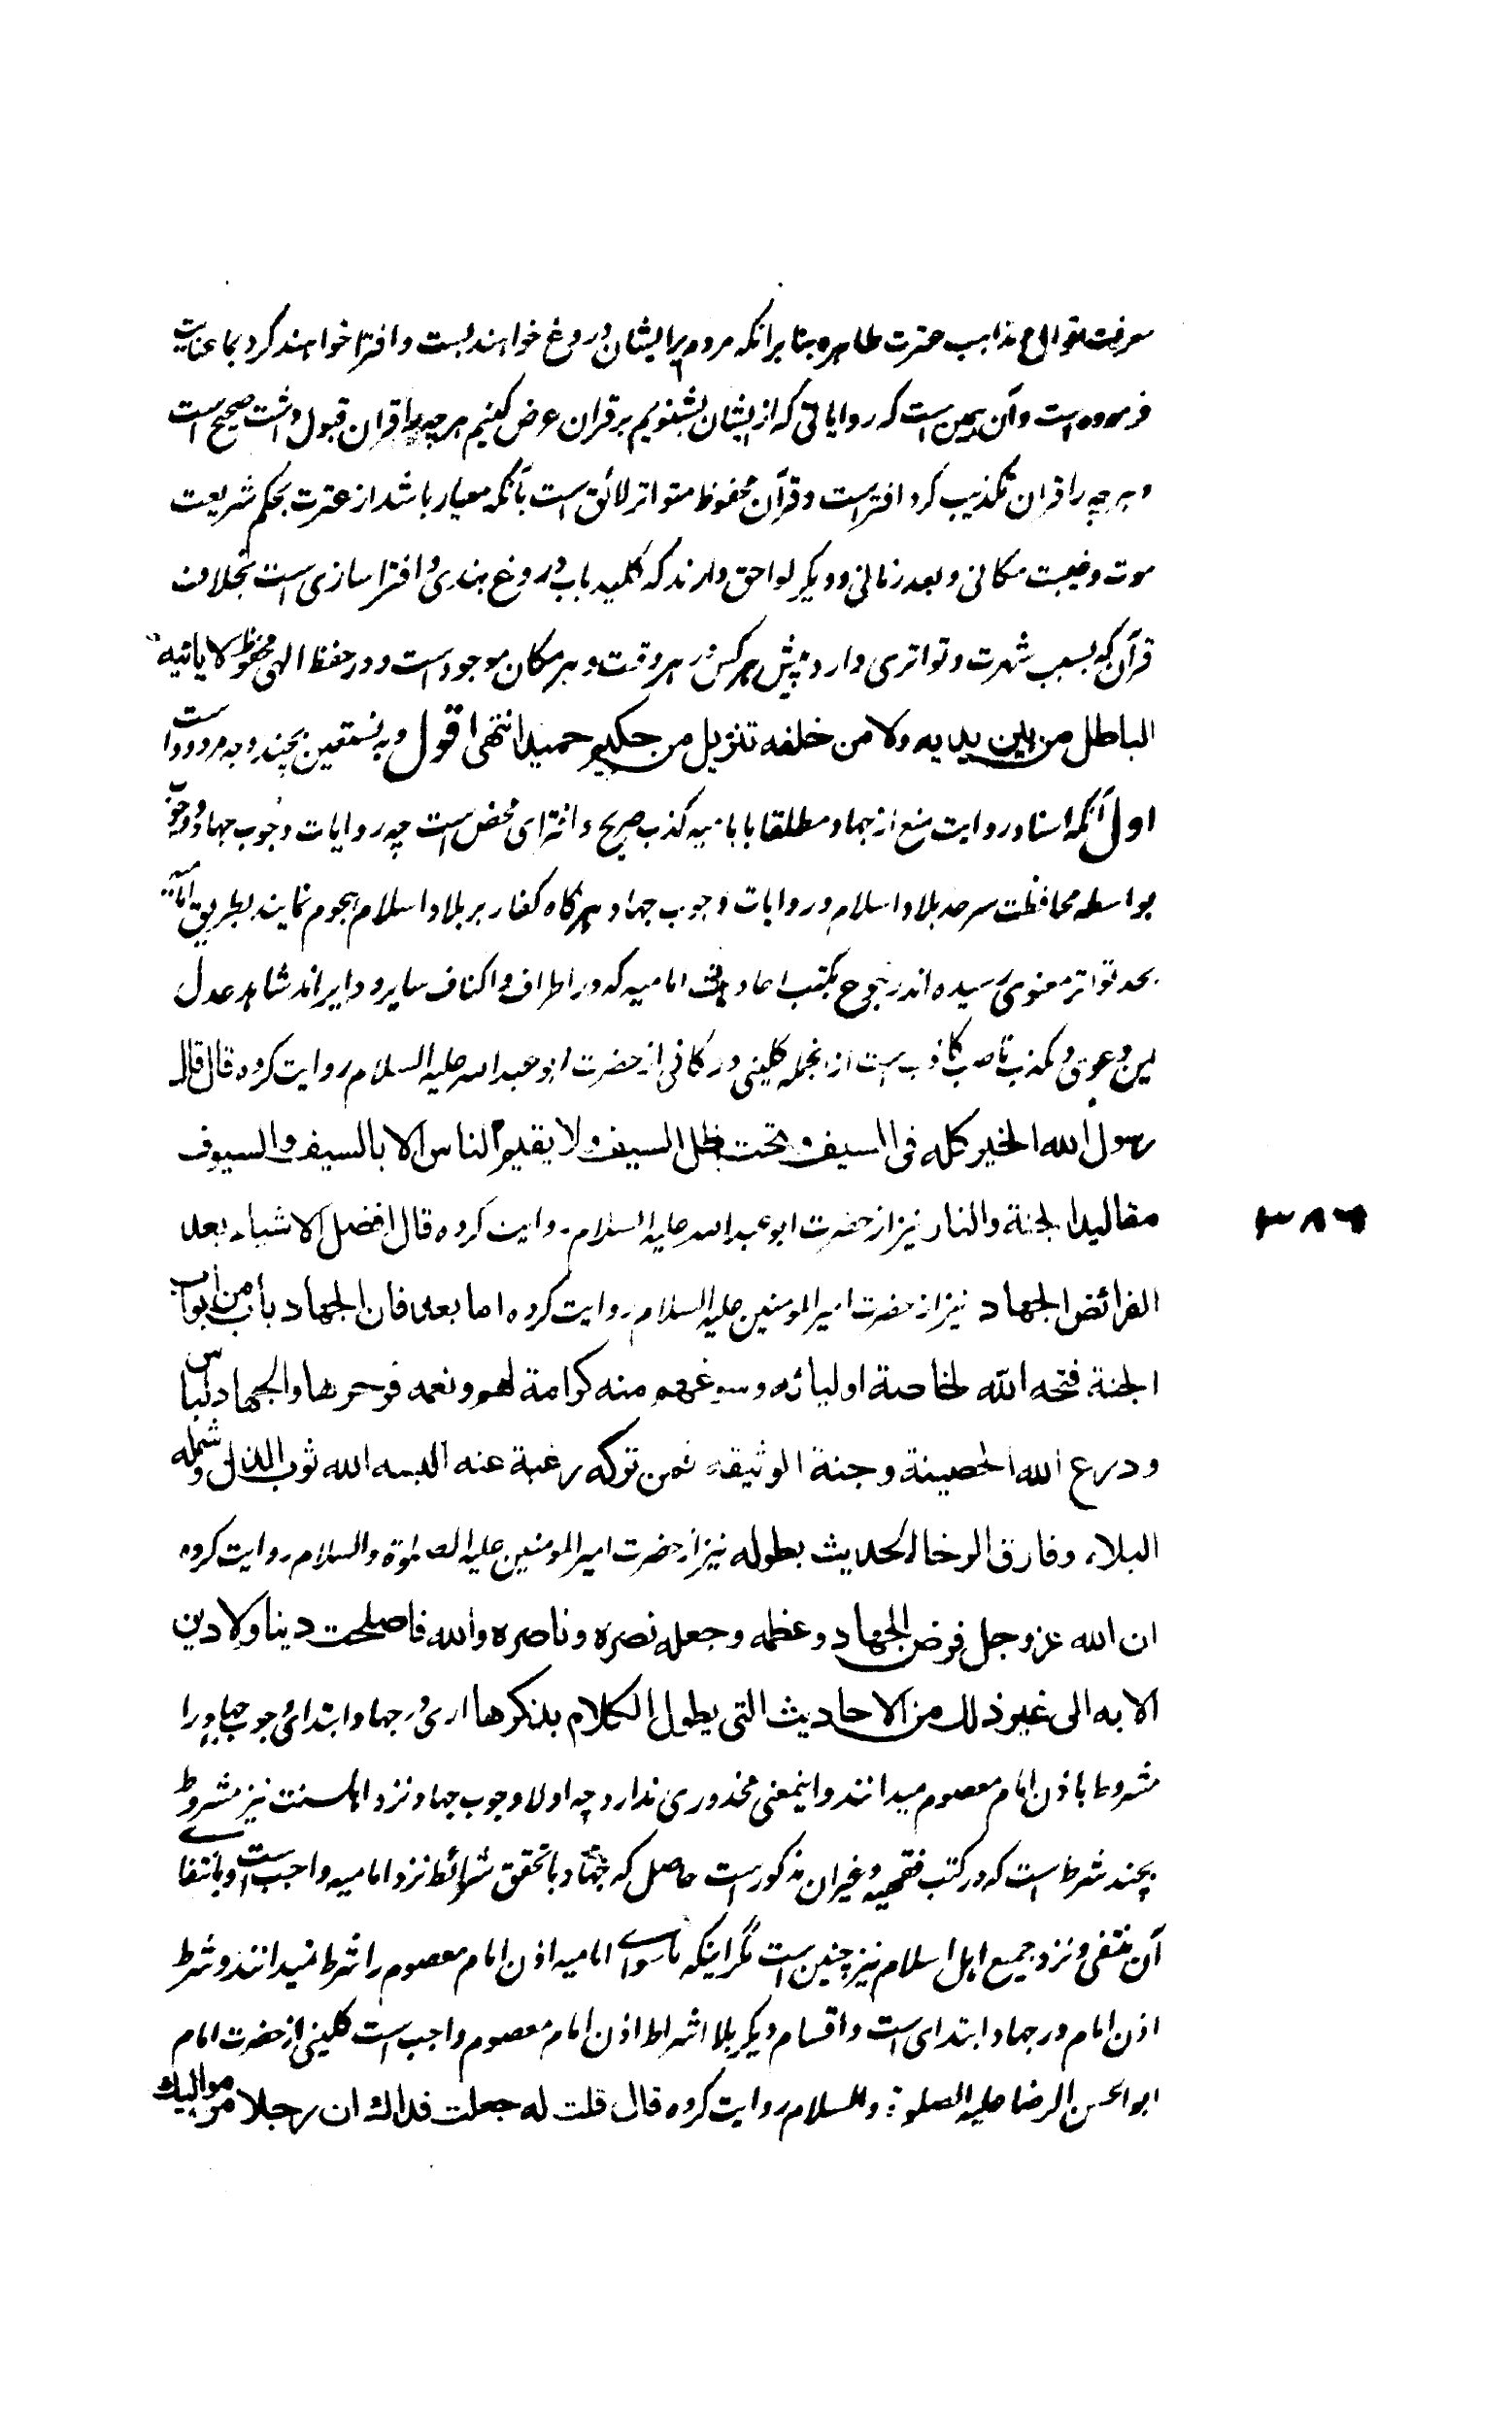 معرفت توالی مذاهب عترت طاهره بنا بر انکه مردم بر ایشان دروغ خواهند بست و افترا خواهند کرد بما عنایت
فرموده است و آن همین است که روایاتی که از ایشان بشنویم بر قران عرض کنیم هر چه را قران قبول داشت صحیح است
و هر چه را قران تکذیب کرد افتراست و قرآن محفوظ متواتر لائق است بآنکه معیار باشد از عترت بحکم شریعت
موت و غیبت مکانی و بعد زمانی و دیگر لواحق دارند که کلید باب دروغ بندی و افترا سازی است بخلاف
قرآن که بسبب شهرت و تواتری دارد پیش هر کس در هر وقت و هر مکان موجود است و در حفظ الهی محفوظ لا یاتیه
الباطل من بین یدیه ولا من خلفه تنزیل من حکیم حمید انتهی اقول و به نستعین بچند وجه مردود است
اول آنکه اسناد روایت منع از جهاد مطلقا با بامیه کذب صریح و افترای محض است چه روایات وجوب جهاد و وجوب
بواسطه محافظت سرحد بلاد اسلام و روایات وجوب جهاد هرگاه کفار بر بلاد اسلام هجوم نمایند بطریق امامیه
بحد تواتر معنوی رسیده اند رجوع بکتب احادیث امامیه که در اطراف و اکناف سایر و دایراند شاهد عدل
این دعوی و مکذب ناصب کاذب است از انجمله کلینی در کافی از حضرت ابو عبدالله علیه السلام روایت کرده قال قال
رسول الله الخیر کله فی السیف و تحت ظل السیف ولا یقیم الناس الا بالسیف والسیوف
مقالید الجنة والنار نیز از حضرت ابو عبدالله علیه السلام روایت کرده قال افضل الاشیاء بعد
الفرائض الجهاد نیز از حضرت امیر المومنین علیه السلام روایت کرده اما بعد فان الجهاد باب من ابواب
الجنة فتحه الله لخاصة اولیائه وسوغهم منه کرامة لهم ونعمه فوحرها والجهاد لباس
ودرع الله الحصینة وجنة الوثیقه فمن ترکه رغبة عنه البسه الله ثوب الذل وشمله
البلاء وفارق الرخا الحدیث بطوله نیز از حضرت امیر المومنین علیه الصلوة والسلام روایت کرده
ان الله عز وجل فرض الجهاد وعظمه وجعله نصره وناصره والله فاصلحت دینا ولا دین
الا به الی غیر ذلک من الاحادیث التی یطول الکلام بذکرها اری در جهاد ابتدائی وجوب جهاد را
مشروط باذن امام معصوم میدانند و اینمعنی محذوری ندارد چه اولا وجوب جهاد نزد اهلسنت نیز مشروط
بچند شرط است که در کتب فقهیه و غیر ان مذکور است حاصل که جهاد با تحقق شرائط نزد امامیه واجب است و بانتفا
آن منتفی و نزد جمیع اهل اسلام نیز چنین است مگر اینکه ما سوای امامیه اذن امام معصوم را شرط نمیدانند و شرط
اذن امام در جهاد ابتدای است و اقسام دیگر بلا اشراط اذن امام معصوم واجب است کلینی از حضرت امام
ابو الحسن الرضا علیه الصلوة والسلام روایت کرده قال قلت له جعلت فداک ان رجلا من موالیک
۳۸۶